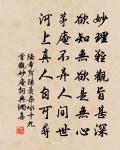 妙理難觀旨甚深
欲知無欲是無心
茅庵不異人間世
河上真人自可尋
陸希聲陽羨雜詠十九
首觀妙庵詞典網集